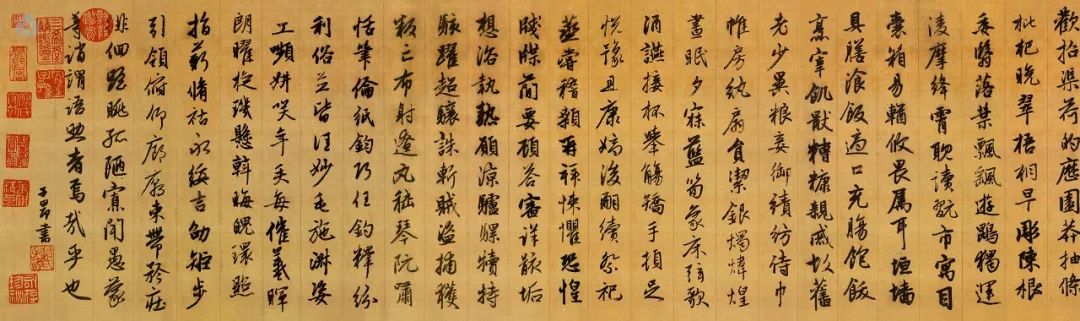 歡招渠荷的歷園莽抽條
枇杷晚翠梧桐早彫陳根
委翳落葉飄颻遊鵾獨運
凌摩絳霄耽讀翫市寓目
囊箱易輶攸畏屬耳垣墻
具膳飡飯適口充腸飽飫
烹宰飢猒糟糠親戚故舊
老少異粮妾御績紡侍巾
帷房紈扇員潔銀燭煒煌
晝眠夕寐藍筍象床弦歌
酒讌接杯舉觴矯手頓足
悅豫且康嫡後嗣續祭祀
蒸嘗稽顙再拜悚懼恐惶
牋牒簡要顧答審詳骸垢
想浴執熱願涼驢騾犢特
駭躍超驤誅斬賊盜捕獲
叛亡布射遼丸嵇琴阮嘯
恬筆倫紙鈞巧任釣釋紛
利俗並皆佳妙毛施淑姿
工顰妍笑年矢每催羲暉
朗曜旋璣懸斡晦魄環照
指薪脩祜永綏吉劭矩步
引領俯仰廊廟束帶矜莊
徘徊瞻眺孤陋寡聞愚蒙
等誚謂語助者焉哉乎也
子昂書